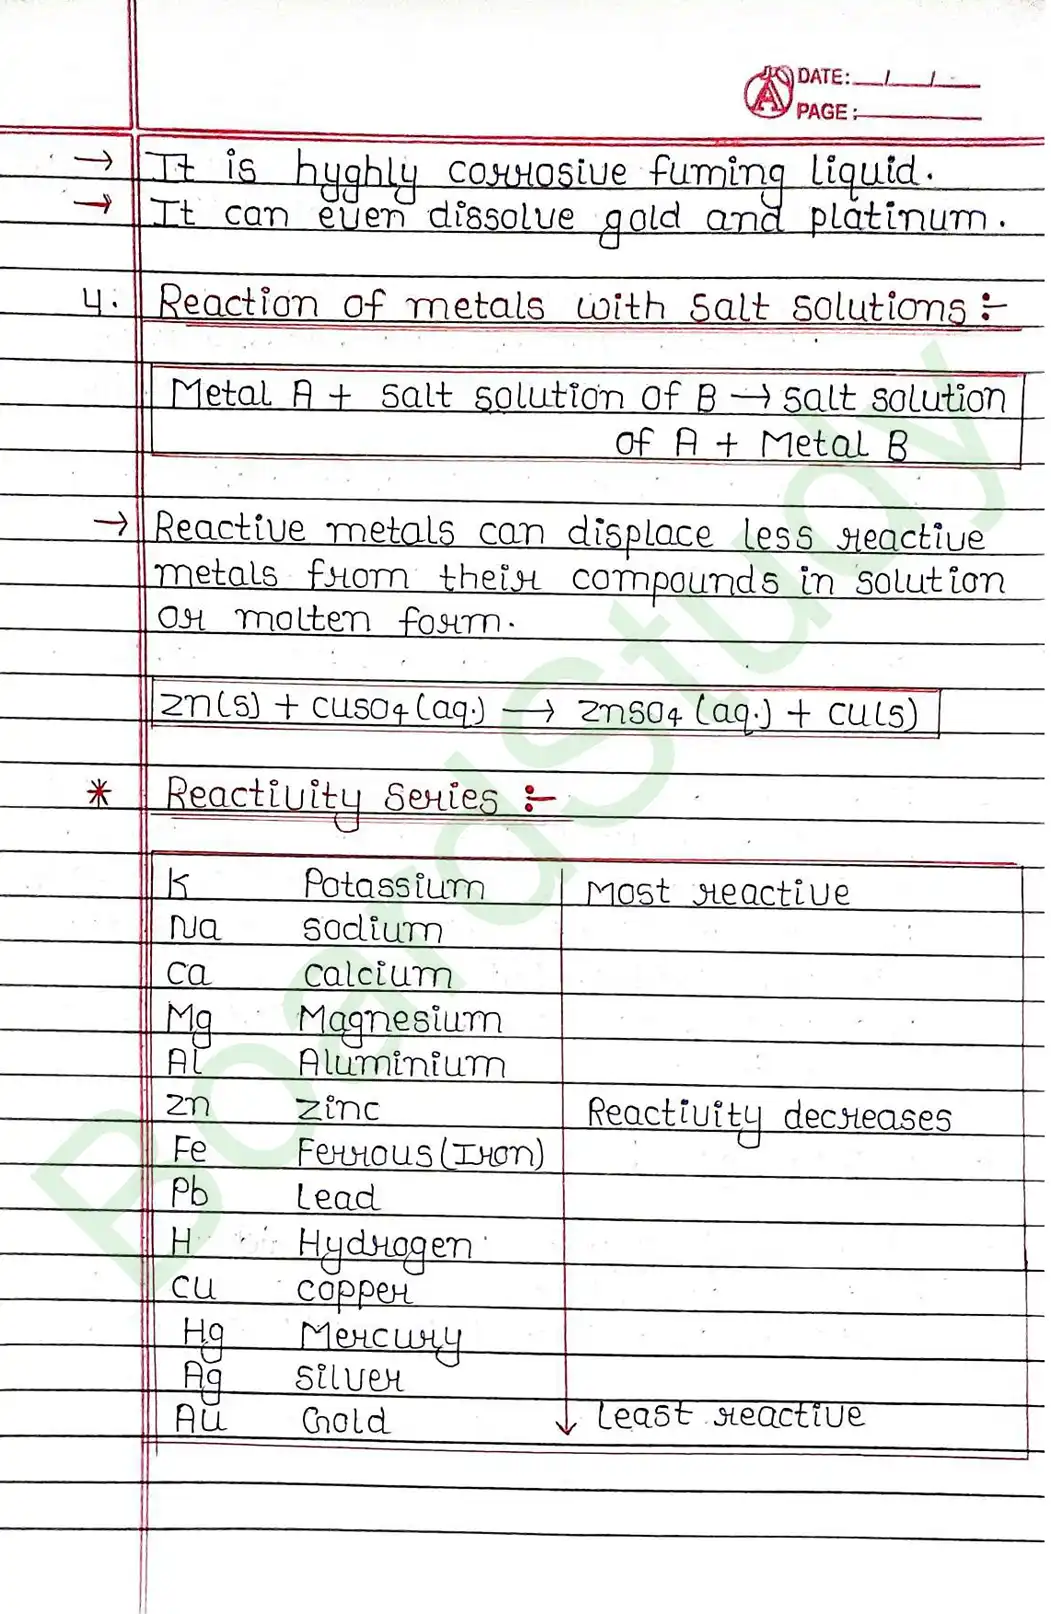 DATE: __/__/__
PAGE: ______
→ It is hyghly corrosive fuming liquid.
→ It can even dissolve gold and platinum.
4. Reaction of metals with salt solutions :-
Metal A + salt solution of B → salt solution
of A + Metal B
→ Reactive metals can displace less reactive
metals from their compounds in solution
or molten form.
zn(s) + cuso4 (aq.) → znso4 (aq.) + cu(s)
* Reactivity series :-
K Potassium Most reactive
Na sodium
ca calcium
Mg Magnesium
Al Aluminium
zn zinc Reactivity decreases
Fe Ferrous (Iron)
Pb Lead
H Hydrogen
cu copper
Hg Mercury
Ag silver
Au Gold Least reactive
BoardStudy